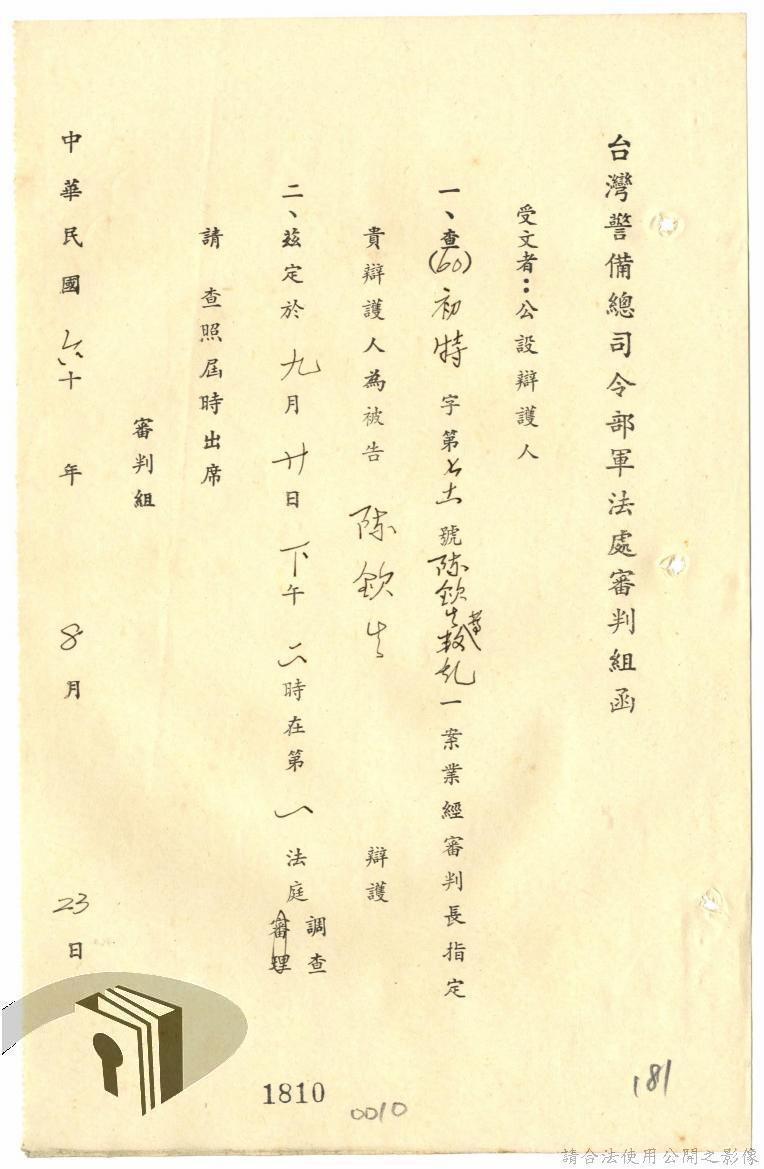 台灣警備總司令部軍法處審判組函
受文者：公設辯護人
一、查(60)初特字第七十一號陳欽生等叛亂一案業經審判長指定
貴辯護人為被告陳欽生辯護
二、茲定於九月廿日下午二時在第一法庭調查審理
請查照屆時出席
審判組
中華民國六十年8月23日
1810
0010
181
請合法使用公開之影像